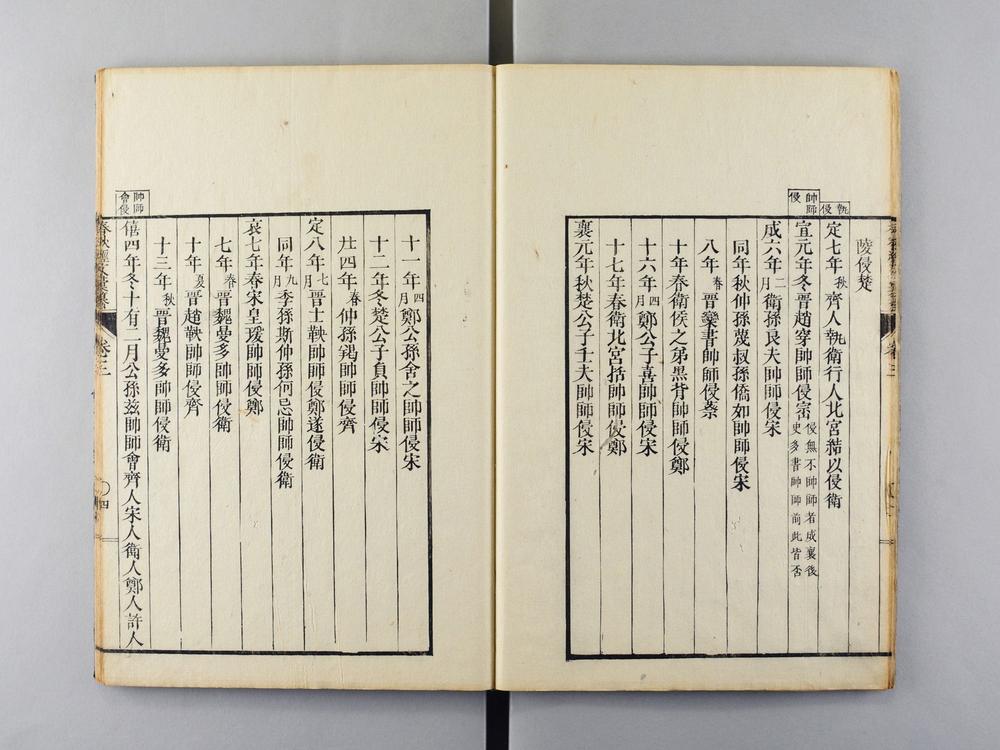 陵侵楚
執侵
定七年秋齊人執衛行人北宮結以侵衛
帥師侵
宣元年冬晉趙穿帥師侵崇侵無不帥師者成襄後史多書帥師前此皆否
成六年二月衛孫良夫帥師侵宋
同年秋仲孫蔑叔孫僑如帥師侵宋
八年春晉欒書帥師侵蔡
十年春衛侯之弟黑背帥師侵鄭
十六年四月鄭公子喜帥師侵宋
十七年春衛北宮括帥師侵鄭
襄元年秋楚公子壬夫帥師侵宋
十一年四月鄭公孫舍之帥師侵宋
十二年冬楚公子貞帥師侵宋
廿四年春仲孫羯帥師侵齊
定八年七月晉士鞅帥師侵鄭遂侵衛
同年九月季孫斯仲孫何忌帥師侵衛
哀七年春宋皇瑗帥師侵鄭
七年春晉魏曼多帥師侵衛
十年夏晉趙鞅帥師侵齊
十三年秋晉魏曼多帥師侵衛
帥師會侵
僖四年冬十有二月公孫茲帥師會齊人宋人衛人鄭人許人
卷三
四